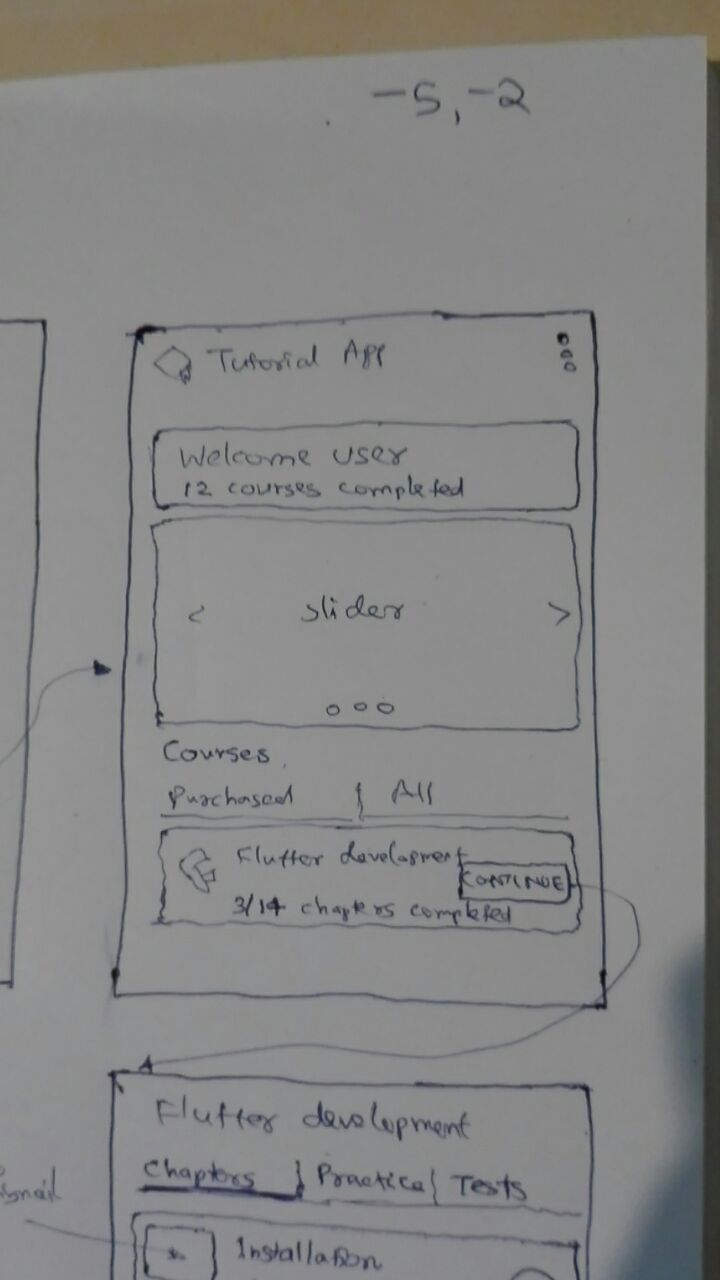 -5, -2
Tutorial App
Welcome user
12 courses completed
< slider >
Courses
Purchased | All
Flutter development
CONTINUE
3/14 chapters completed
Flutter development
Chapters | Practice | Tests
Installation